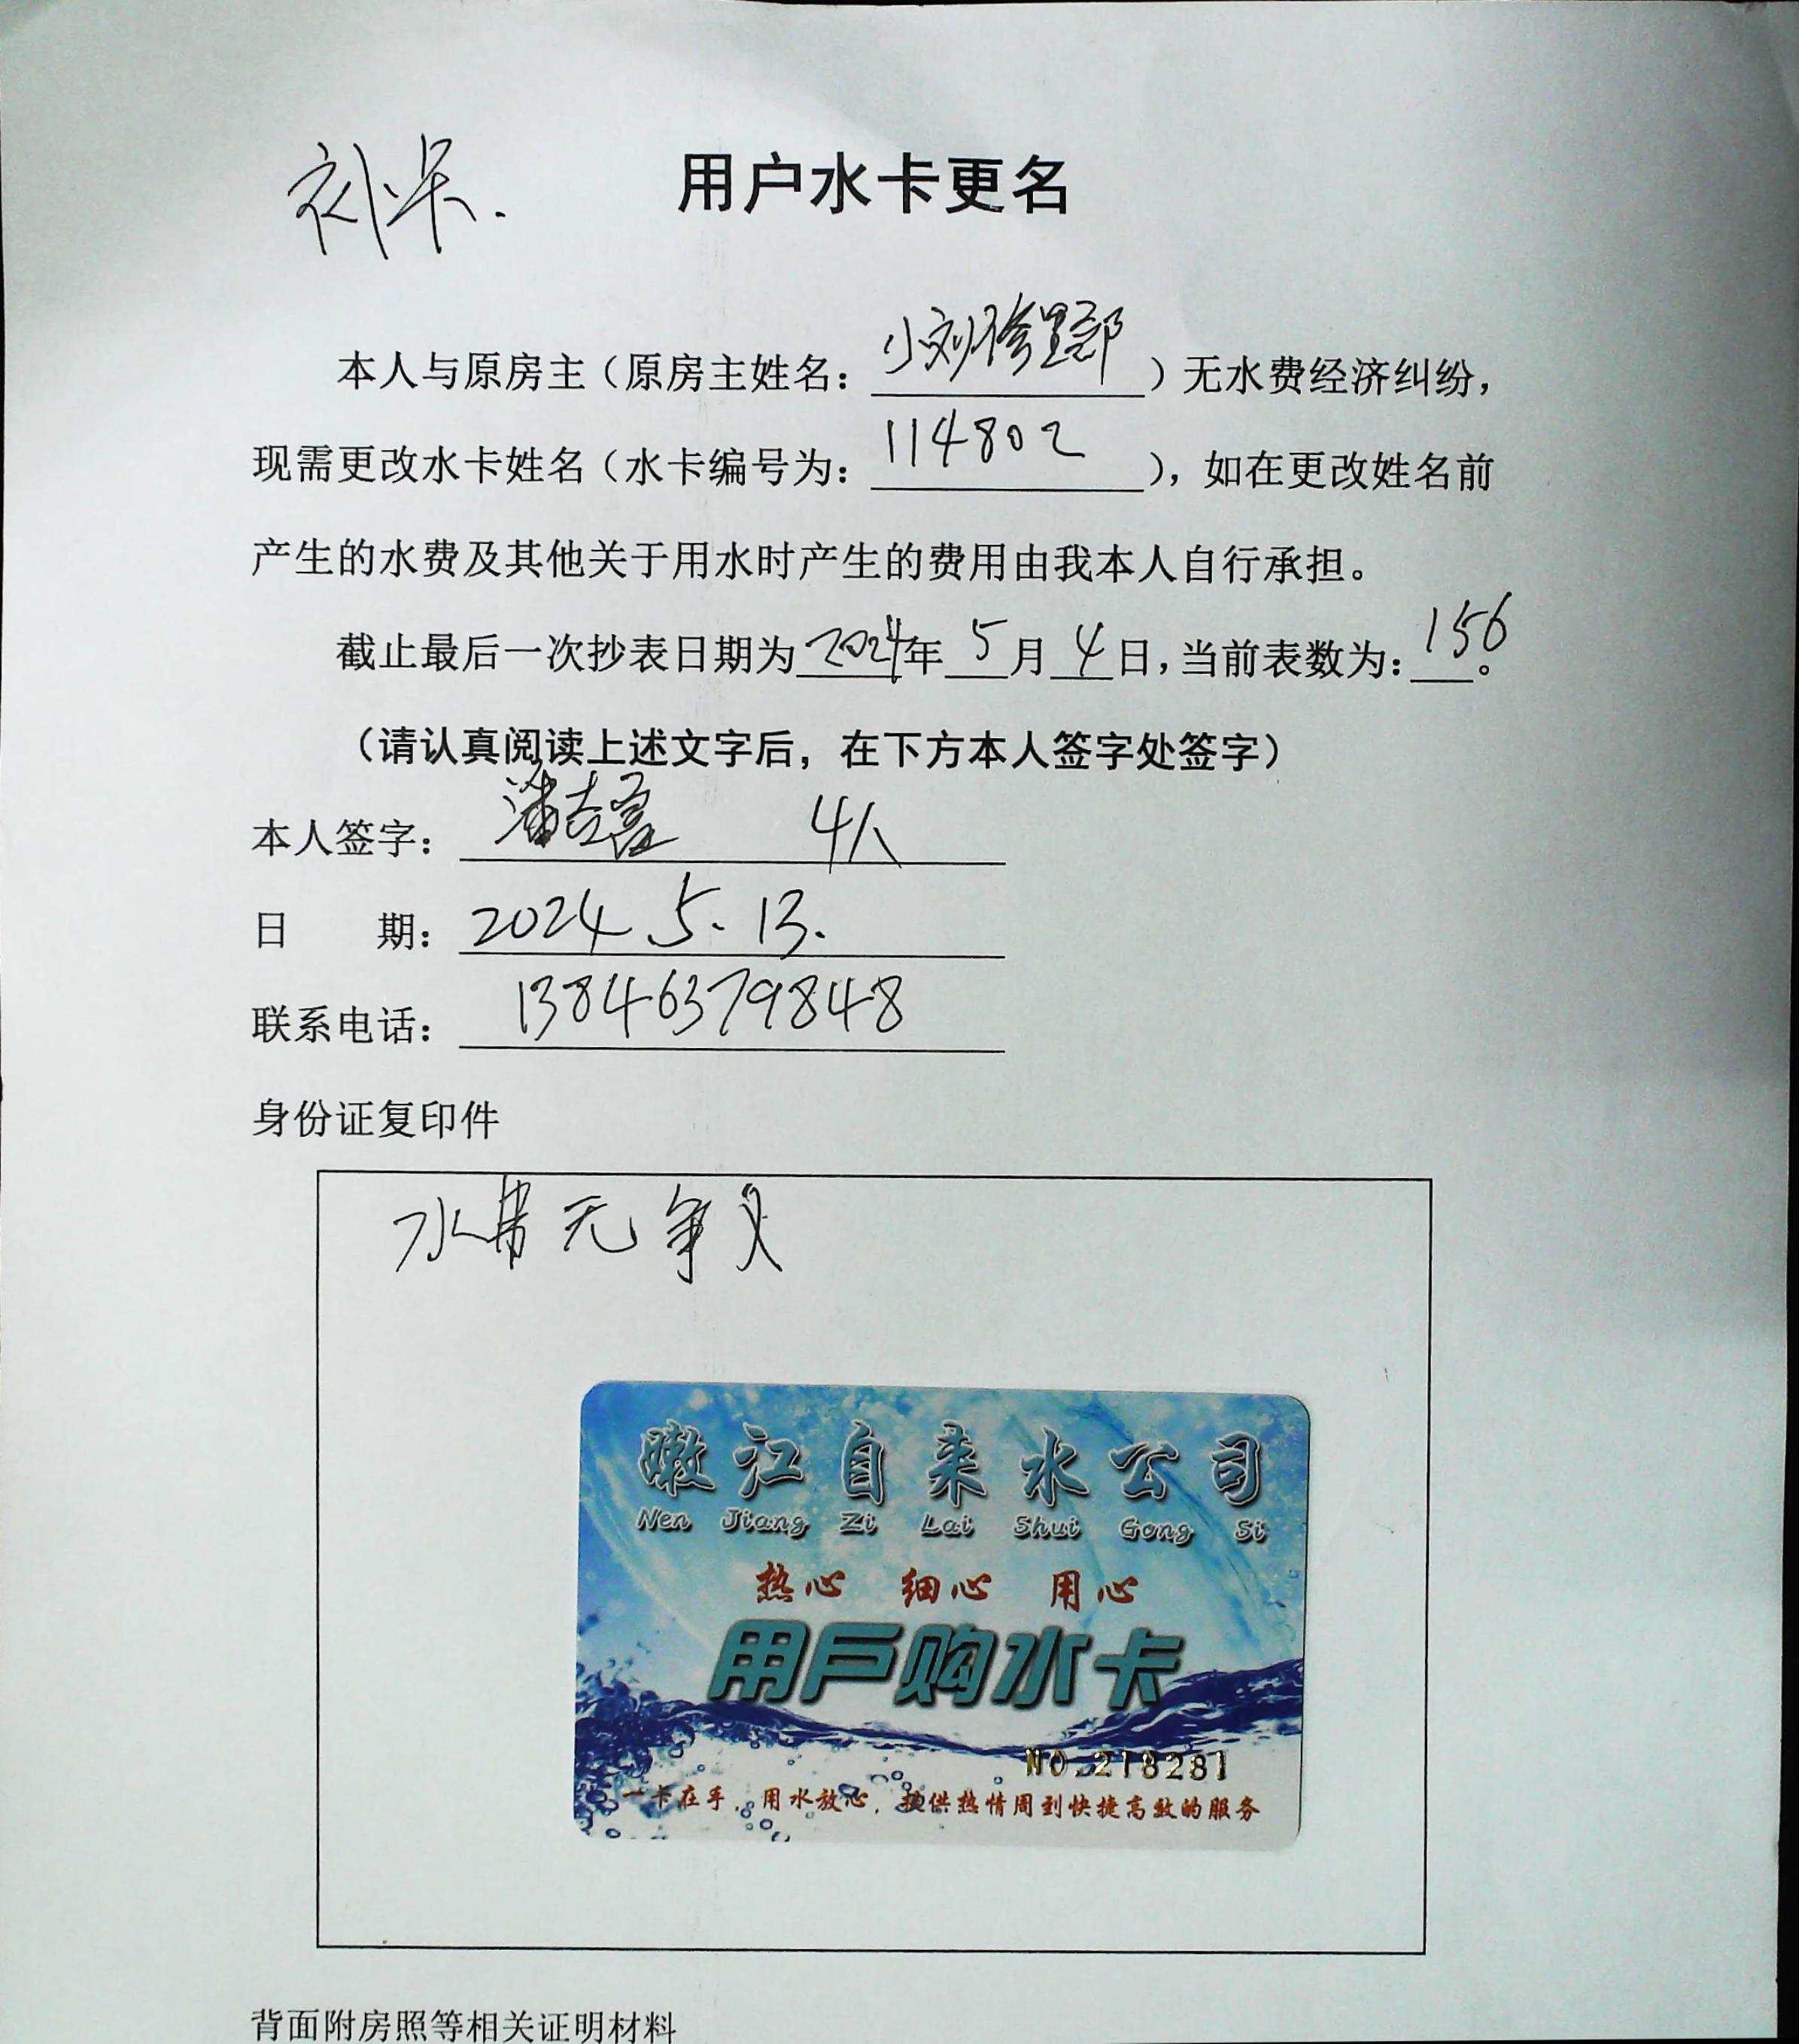 补卡.
用户水卡更名
本人与原房主（原房主姓名：小刘修理部）无水费经济纠纷，
现需更改水卡姓名（水卡编号为：114802），如在更改姓名前
产生的水费及其他关于用水时产生的费用由我本人自行承担。
截止最后一次抄表日期为2024年5月4日，当前表数为：156。
（请认真阅读上述文字后，在下方本人签字处签字）
本人签字： 潘 4人
日 期：2024.5.13.
联系电话：13846379848
身份证复印件
水费无争义
嫩江自来水公司
Nen Jiang Zi Lai Shui Gong Si
热心 细心 用心
用户购水卡
NO.218281
一卡在手，用水放心，提供热情周到快捷高效的服务
背面附房照等相关证明材料